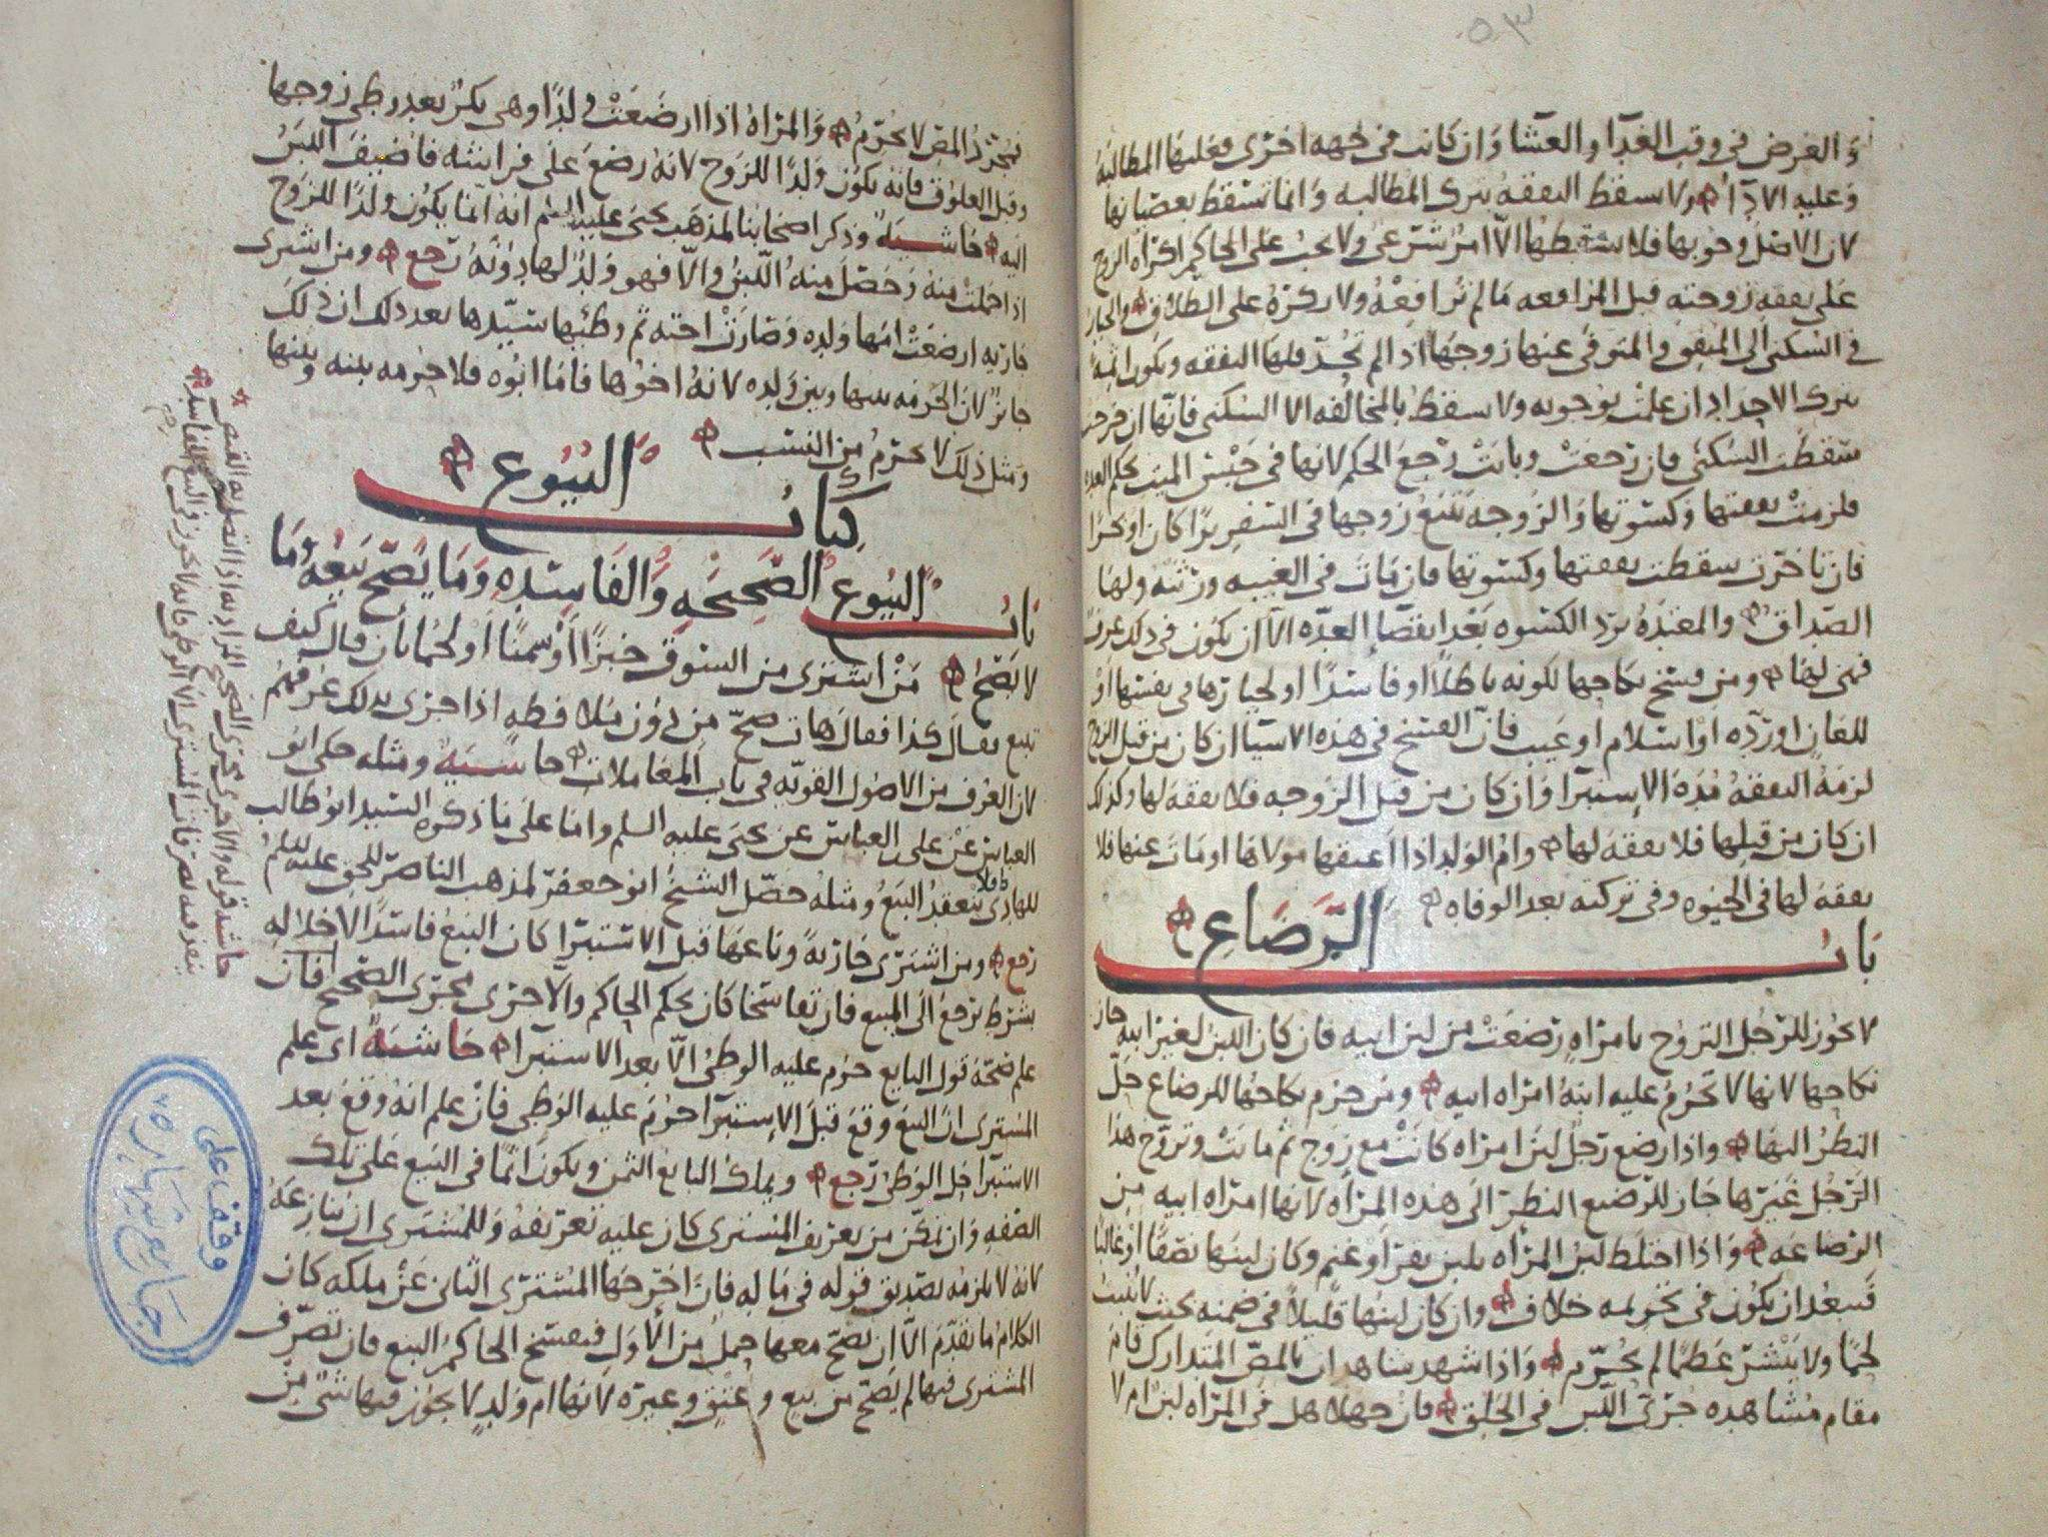 ٥٣
والعرض في وقت الغدآ والعشا وان كانت في جهه اخرى فعليها المطالبة
وعليه الادآ ولا تسقط النفقه بترك المطالبه وانما تسقط بعصيانها
لان الاصل وجوبها فلا يسقطها الّا امر شرعي ولا يجب على الحاكم اكراه الزوج
على نفقه زوجته قبل المرافعه ما لم ترافعه ولا يكره على الطلاق والخيار
في السكنى الى المتوفى عنها زوجها اذا لم تحد فلها النفقه وتكون اثمة
بترك الاحداد ان علمت بوجوبه ولا يسقط بالمخالفه الا السكنى فانها ان خرجت
سقطت السكنى فان رجعت وباتت رجع الحكم لانها في حبس الميت بحكم العده
فلزمت نفقتها وكسوتها والزوجه تتبع زوجها في السفر برًا كان او بحرًا
فان تاخرت سقطت نفقتها وكسوتها فان مات في الغيبه ورثته ولها
الصداق والمعتدة تردّ الكسوه بعد انقضآ العدّه الّا ان يكون في ذلك عرف
فهي لها ومن فسخ نكاحها لكونه باطلًا او فاسدًا او لخيارها في نفسها او
للعان او ردّه او اسلام او عيب فانّ الفسخ في هذه الاشيا ان كان من قبل الزوج
لزمه النفقه مدة الإستبرآ وان كان من قبل الزوجه فلا نفقه لها وكذلك
ان كان من قبلها فلا نفقه لها وام الولد اذا اعتقها مولاها او مات عنها فلا
نفقه لها في الحيوه وفي تركته بعد الوفاه
باب الرضاع
لا يجوز للرجل التزوج بامراهٍ رضعت من لبن ابيه فان كان اللبن لغير ابيه جاز
نكاحها لانها لا تحرم عليه ابنة امراه ابيه ومن حرم نكاحها للرضاع حلّ
النظر اليها واذا رضع رجل لبن امراه كانت مع زوج ثم ماتت وتزوج هذا
الرجل غيرها جاز للرضيع النظر الى هذه المرأه لانها امراه ابيه من
الرضاعه واذا اختلط لبن المرأه بلبن بقر او غنم وكان لبنها نصفًا او غالبًا
فيبعد ان يكون في تحريمه خلاف وان كان لبنها قليلًا في ضمنه بحيث لا ينبت
لحمًا ولا ينشر عظمًا لم يحرّم واذا شهد شاهدان بالمصّ المتدارك قام
مقام مشاهده جري اللبن في الحلق فان جهلا هل في المرأه لبن ام لا
فمجرّد المصّ لا يحرّم والمرأه اذا ارضعت ولدًا وهي بكر بعد وطي زوجها
وقبل العلوق فانه يكون ولدًا للزوج لانه رضع على فراشه فاضيف اللبن
اليه حاشيه وذكر اصحابنا لمذهب يحيى عليه السلم انه انما يكون ولدًا للزوج
اذا حملت منه وحصل منه اللبن والّا فهو ولد لها دونه رجع ومن اشترى
جاريه ارضعت امها ولده وصارت اخته ثم وطئها سيّدها بعد ذلك ان ذلك
جائز لان الحرمه بينها وبين ولده لانه اخوها فاما ابوه فلا حرمه بينه وبينها
ومثل ذلك لا يحرم من النسب
كتاب البيوع
باب البيوع الصحيحه والفاسده وما يصح بيعه وما
لا يصح من اشترى من السوق خبزًا او سمنًا او لحمًا بان قال كيف
تبيع فقال كذا فقال هات صحّ من دون تلافظه اذا جرى بذلك عرفهم
لان العرف من الاصول القويه في باب المعاملات حاشيه ومثله حكى ابو
العباس عن علي العباس عن يحيى عليه السلم واما على ما ذكره السيد ابو طالب
للهادي فلا ينعقد البيع ومثله حصّل الشيخ ابو جعفر لمذهب الناصر للحق عليه السلم
رجع ومن اشترى جاريةً وباعها قبل الاستبرآ كان البيع فاسدًا لاخلاله
بشرط يرجع الى المبيع فان تفاسخا كان بحكم الحاكم والّا جرى مجرى الصحيح فان
علم صحّة قول البايع حرم عليه الوطئ الّا بعد الاستبرآ حاشيةً اى علم
المشترى ان البيع وقع قبل الإستبرآ حرم عليه الوطئ فان علم انه وقع بعد
الاستبرآ حل الوطئ رجع ويملك البايع الثمن ويكون آثمًا في البيع على تلك
الصفه وان تمكّن من تعريف المشترى كان عليه تعريفه وللمشترى ان ينازعه
لانه لا يلزمه تصديق قوله في ماله فان اخرجها المشترى الثاني عن ملكه كان
الكلام ما تقدّم الّا ان يصحّ معها حمل من الاول فيفسخ الحاكم البيع فان تصرّف
المشترى فيها لم يصح من بيع وعتق وغيره لانها ام ولدٍ لا يجوز فيها شئ من
حاشيه قوله والا جرى مجرى الصحيح المراد به اذا اتصل به القبض
وقف على
جامع شهاره